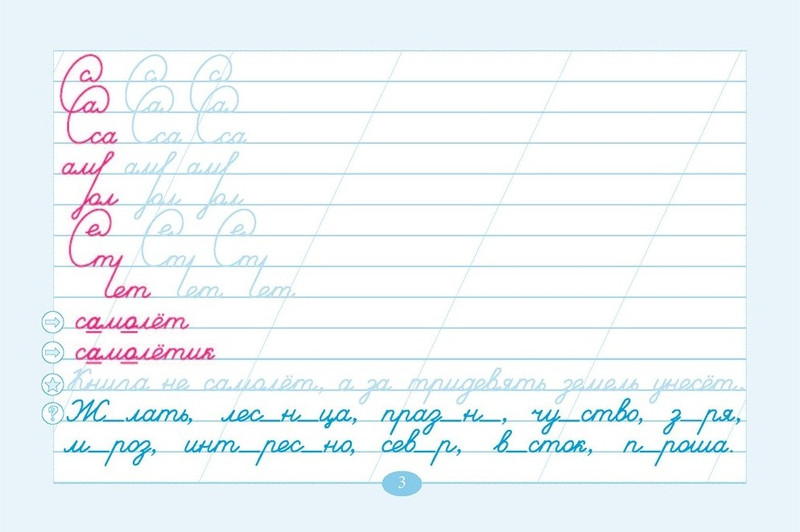 Са Са Са
Са Са Са
Сса Сса Сса
амф амф амф
фол фол фол
Се Се Се
Сту Сту Сту
ует ует ует
самолёт
самолётик
Книга не самолёт, а за тридевять земель унесёт.
Ж_лать, лес_н_ца, праз_н_, чу_ство, з_ря,
м_роз, инт_рес_но, сев_р, в_сток, п_роша.
3